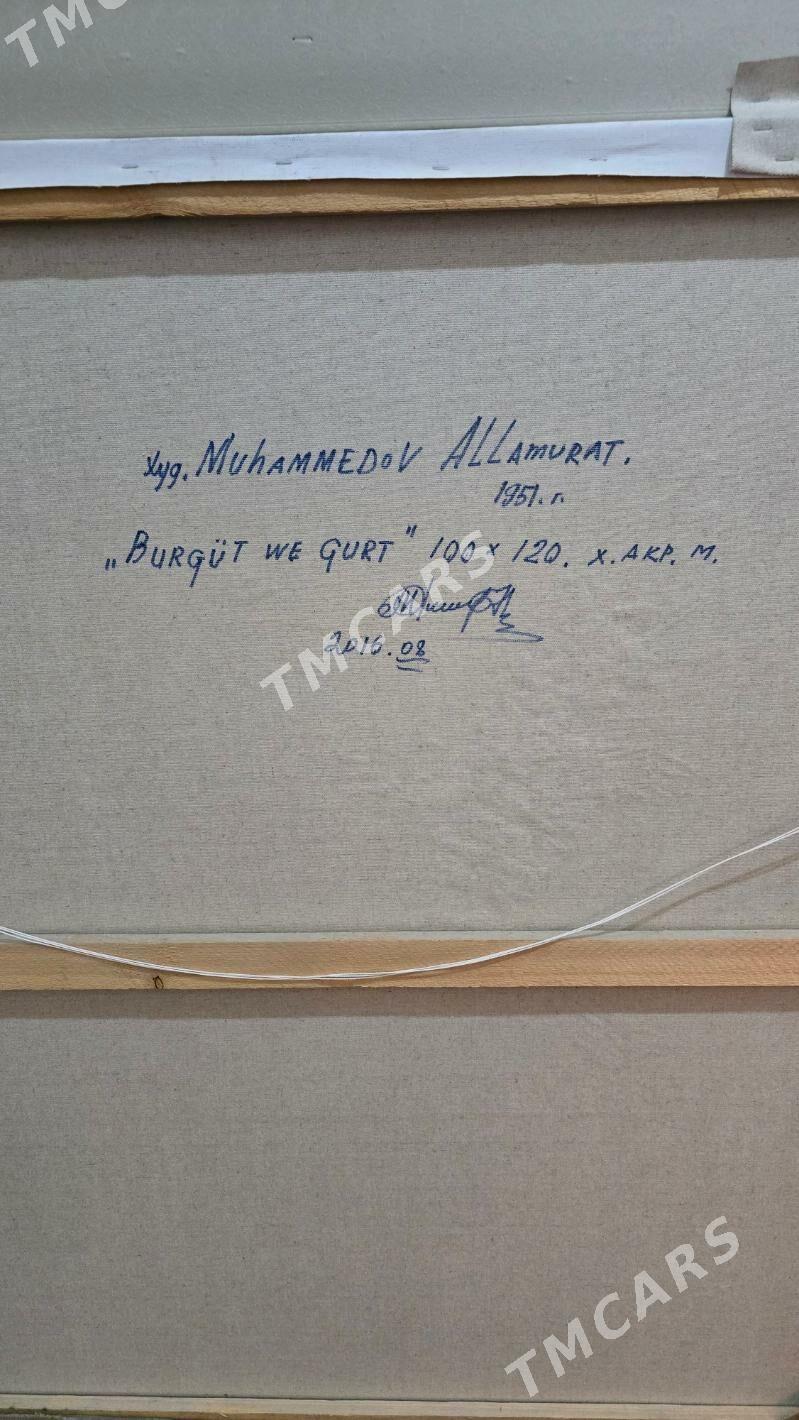 TMCARS
худ. MUHAMMEDOV ALLAMURAT.
1951. г.
„BURGÜT WE GURT" 100 x 120. х. АКР. М.
2016.08
TMCARS
TMCARS